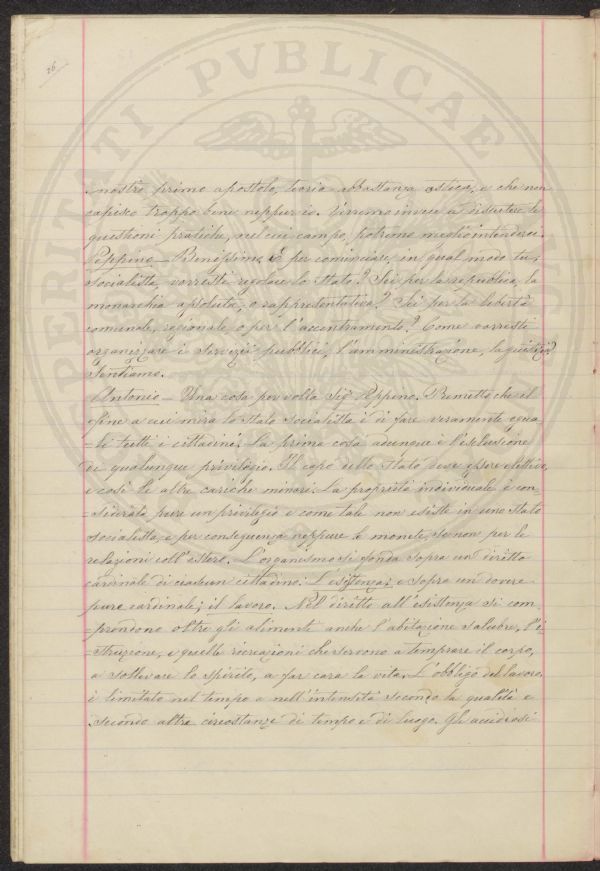 26
nostro primo apostolo, teoria abbastanza astica, e che non
capisco troppo bene neppur io. Verremo invece a discutere le
questioni pratiche, nel cui campo potremo meglio intenderci.
Peppino — Benissimo. E per cominciare, in qual modo tu,
socialista, vorresti regolare lo Stato? Sei per la repubblica, la
monarchia assoluta, o rappresentativa? Sei per la libertà
comunale, regionale, o per l'accentramento? Come vorresti
organizzare i servizii pubblici, l'amministrazione, la giustizia?
Sentiamo.
Antonio — Una cosa per volta Sig. Peppino. Premetto che il
fine a cui mira lo Stato socialista è di fare veramente egua-
-li tutti i cittadini. La prima cosa adunque è l'esclusione
di qualunque privilegio. Il capo dello Stato deve essere elettivo,
e così le altre cariche minori. La proprietà individuale è con-
-siderata pure un privilegio e come tale non esiste in uno Stato
socialista, e per conseguenza neppure le monete, se non per le
relazioni coll'estero. L'organismo si fonda sopra un diritto
cardinale di ciascun cittadino: L'esistenza; e sopra un dovere
pure cardinale; il lavoro. Nel diritto all'esistenza si com-
-prendono oltre gli alimenti anche l'abitazione salubre, l'i-
-struzione, e quelle ricreazioni che servono a temprare il corpo,
a sollevare lo spirito, a far cara la vita. L'obbligo del lavoro
è limitato nel tempo e nell'intensità secondo la qualità e
secondo altre circostanze di tempo e di luogo. Gli accidiosi
PVBLICAE